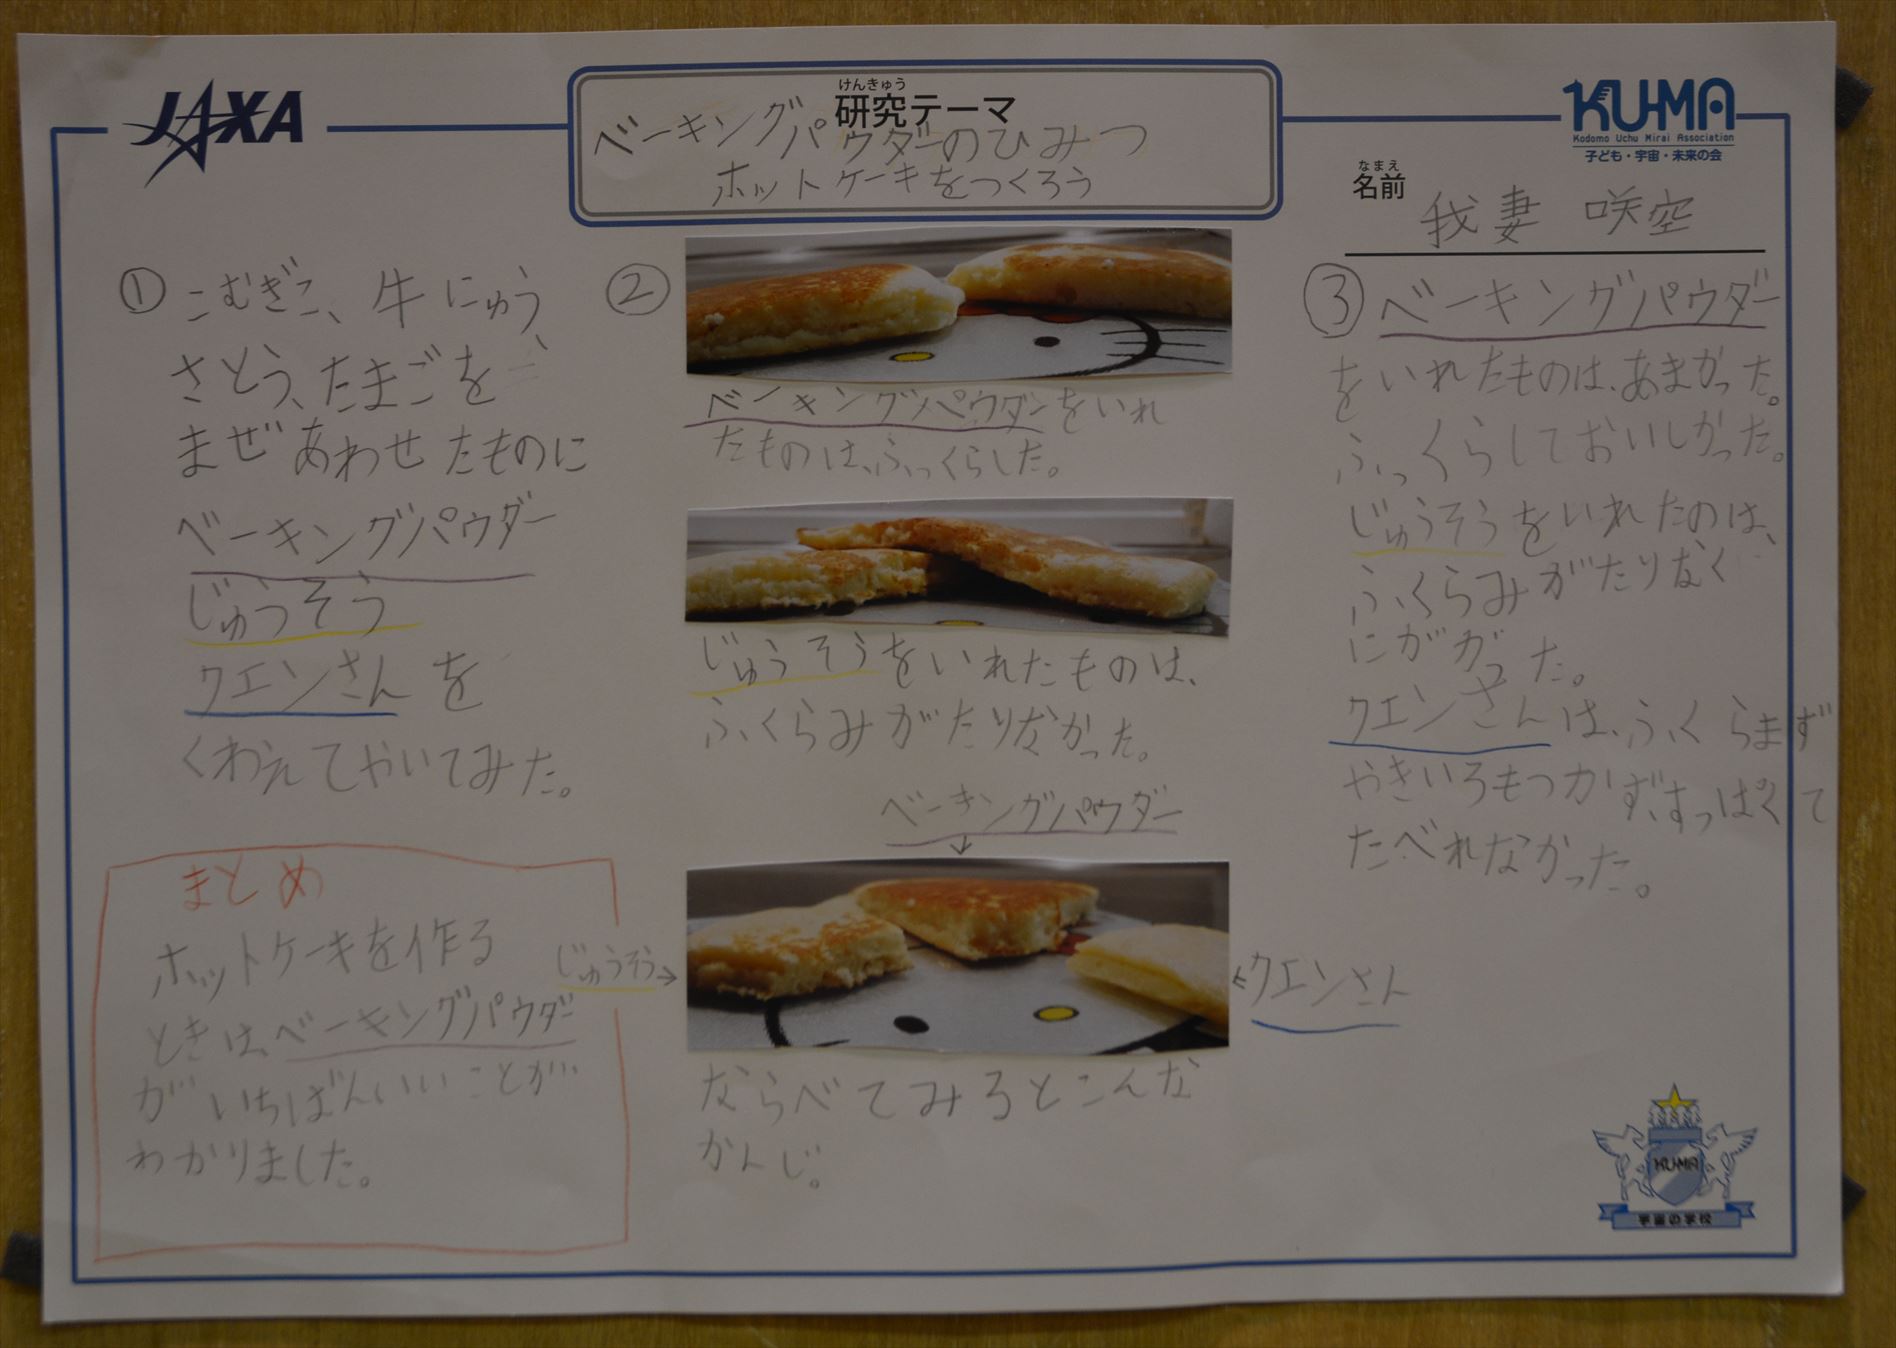 JAXA
けんきゅう
研究テーマ
ベーキングパウダーのひみつ
ホットケーキをつくろう
KU-MA
Kodomo Uchu Mirai Association
子ども・宇宙・未来の会
なまえ
名前
我妻 咲空
① こむぎこ、牛にゅう、
さとう、たまごを
まぜあわせたものに
ベーキングパウダー
じゅうそう
クエンさんを
くわえてやいてみた。
②
ベーキングパウダーをいれ
たものは、ふっくらした。
じゅうそうをいれたものは、
ふくらみがたりなかった。
ベーキングパウダー
↓
じゅうそう→
←クエンさん
ならべてみるとこんな
かんじ。
③ ベーキングパウダー
をいれたものは、あまかった。
ふっくらしておいしかった。
じゅうそうをいれたのは、
ふくらみがたりなく
にがかった。
クエンさんは、ふくらまず
やきいろもつかず、すっぱくて
たべれなかった。
まとめ
ホットケーキを作る
ときは、ベーキングパウダー
がいちばんいいことが
わかりました。
KU-MA
宇宙の学校